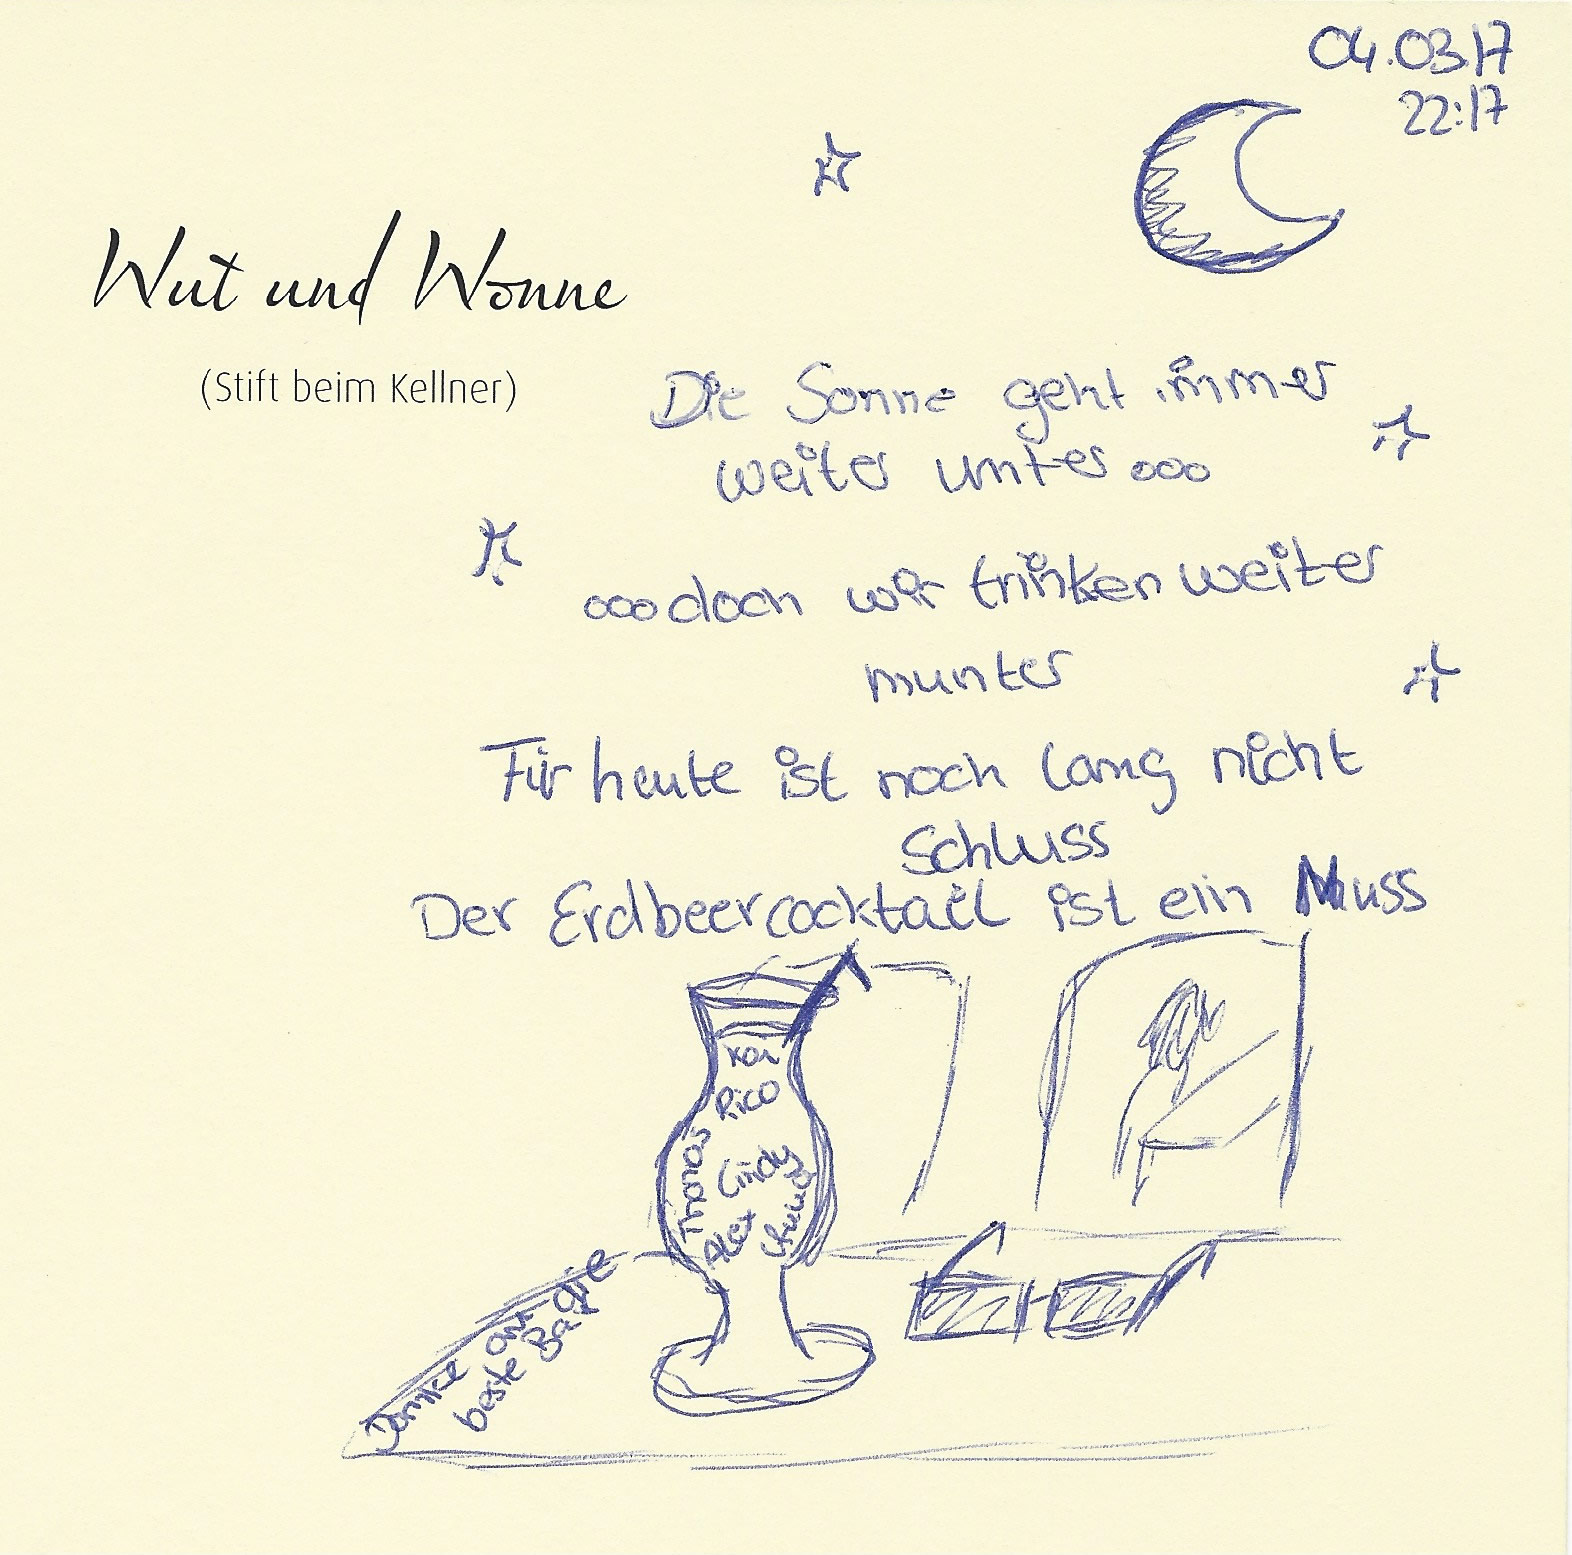 04.03.17
22:17
Wut und Wonne
(Stift beim Kellner)
Die Sonne geht immer
weiter unter ...
...doch wir trinken weiter
munter
Für heute ist noch lang nicht
Schluss
Der Erdbeercocktail ist ein Muss
Kai
Rico
Thomas
Cindy
Alex
Danke an die
beste Bar